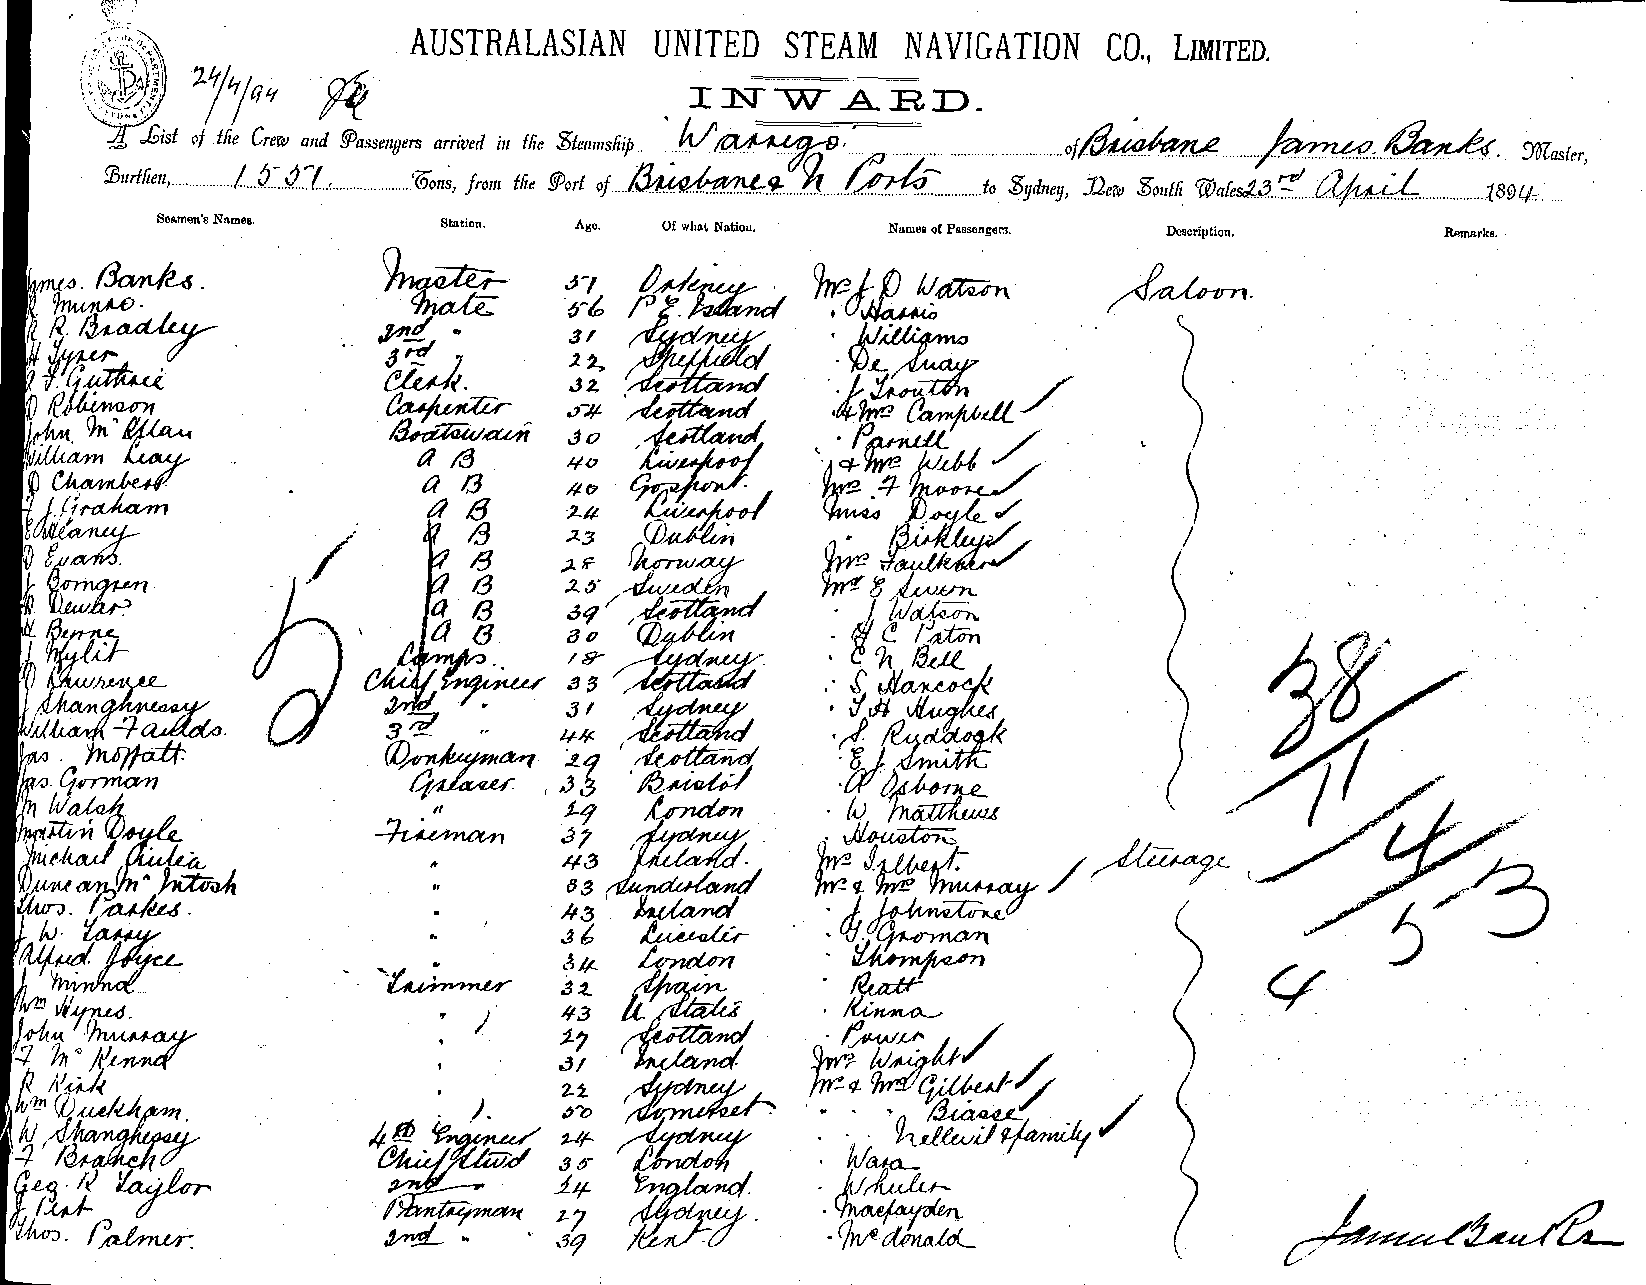 AUSTRALASIAN UNITED STEAM NAVIGATION CO., LIMITED.
24/4/94
INWARD.
A List of the Crew and Passengers arrived in the Steamship Warrego of Brisbane James Banks. Master,
Burthen, 1551. Tons, from the Port of Brisbane & N Ports to Sydney, New South Wales 23rd April 1894
Seamen's Names. Station. Age. Of what Nation. Names of Passengers. Description. Remarks.
James Banks. Master 51 Orkney Mr J D Watson Saloon.
Munro. Mate 56 P E Island " Harris
R Bradley 2nd " 31 Sydney " Williams
Tyrer 3rd " 22 Sheffield " De
Guthrie Clerk. 32 Scotland " J Trouton
D Robinson Carpenter 54 Scotland " & Mrs Campbell
John Boatswain 30 Scotland " Parnell
William Leay A B 40 Liverpool " & Mrs Webb
Chambers A B 40 Gosport. Mrs F Moore
J. Graham A B 24 Liverpool Miss Doyle
A B 23 Dublin "
D Evans. A B 28 Norway Mrs Faulkner
A B 25 Sweden Mr E
Dewar A B 39 Scotland " J Watson
Byrne A B 30 Dublin " H C Paton
Lamps. 18 Sydney " C N Bell
D Lawrence Chief Engineer 33 Scotland " S. Hancock
Shanghnessy 2nd " 31 Sydney " T H Hughes
William Faulds. 3rd " 44 Scotland " S. Ruddock
Jas. Moffatt. Donkeyman 29 Scotland " E J Smith
Jas. Gorman Greaser. 33 Bristol " A Osborne
M Walsh " 29 London " W. Matthews
Martin Doyle Fireman 37 Sydney " Houston
Michael " 43 Ireland. Mr Steerage
Duncan Mc Intosh " 33 Sunderland Mr & Mrs Murray
Thos. Parkes. " 43 Ireland " J Johnstone
J W. Tarry " 36 Leicester " G. Groman
Alfred Joyce " 34 London " Thompson
J Minna Trimmer 32 Spain " Reatt
Wm Hynes. " 43 U. States " Rinna
John Murray " 27 Scotland " Power
F Mc Kenna " 31 Ireland Mrs Wright
R Kirk " 22 Sydney Mr & Mrs Gilbert
Wm Duckham. " 50 Somerset " " Biasse
W Shanghessy 4th Engineer 24 Sydney " " & family
F Branch Chief Stwd 35 London " Wara
Geo. R Taylor 2nd " 24 England. " Wheeler
J Pent Pantryman 27 Sydney. " Macfayden
Thos. Palmer. 2nd " 39 Kent " McDonald
38
11
4
53
4
James Banks